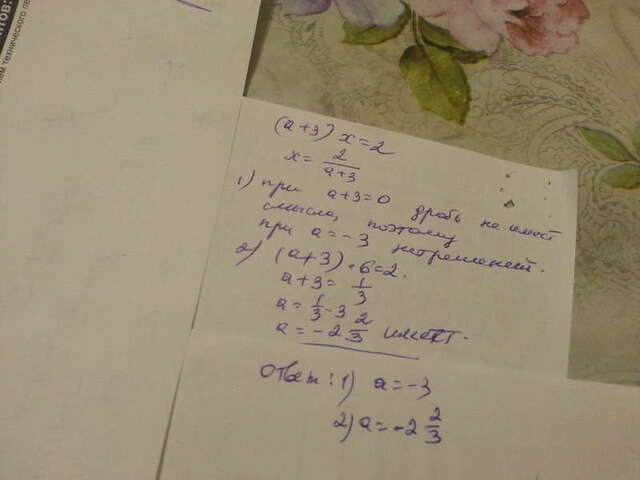 (a+3) x=2
x= 2/(a+3)
1) при a+3=0 дробь не имеет
смысла, поэтому
при a=-3 нет решений.
2) (a+3)·6=2.
a+3= 1/3
a= 1/3 -3
a= -2 2/3 имеет.
Ответ: 1) a=-3
2) a=-2 2/3